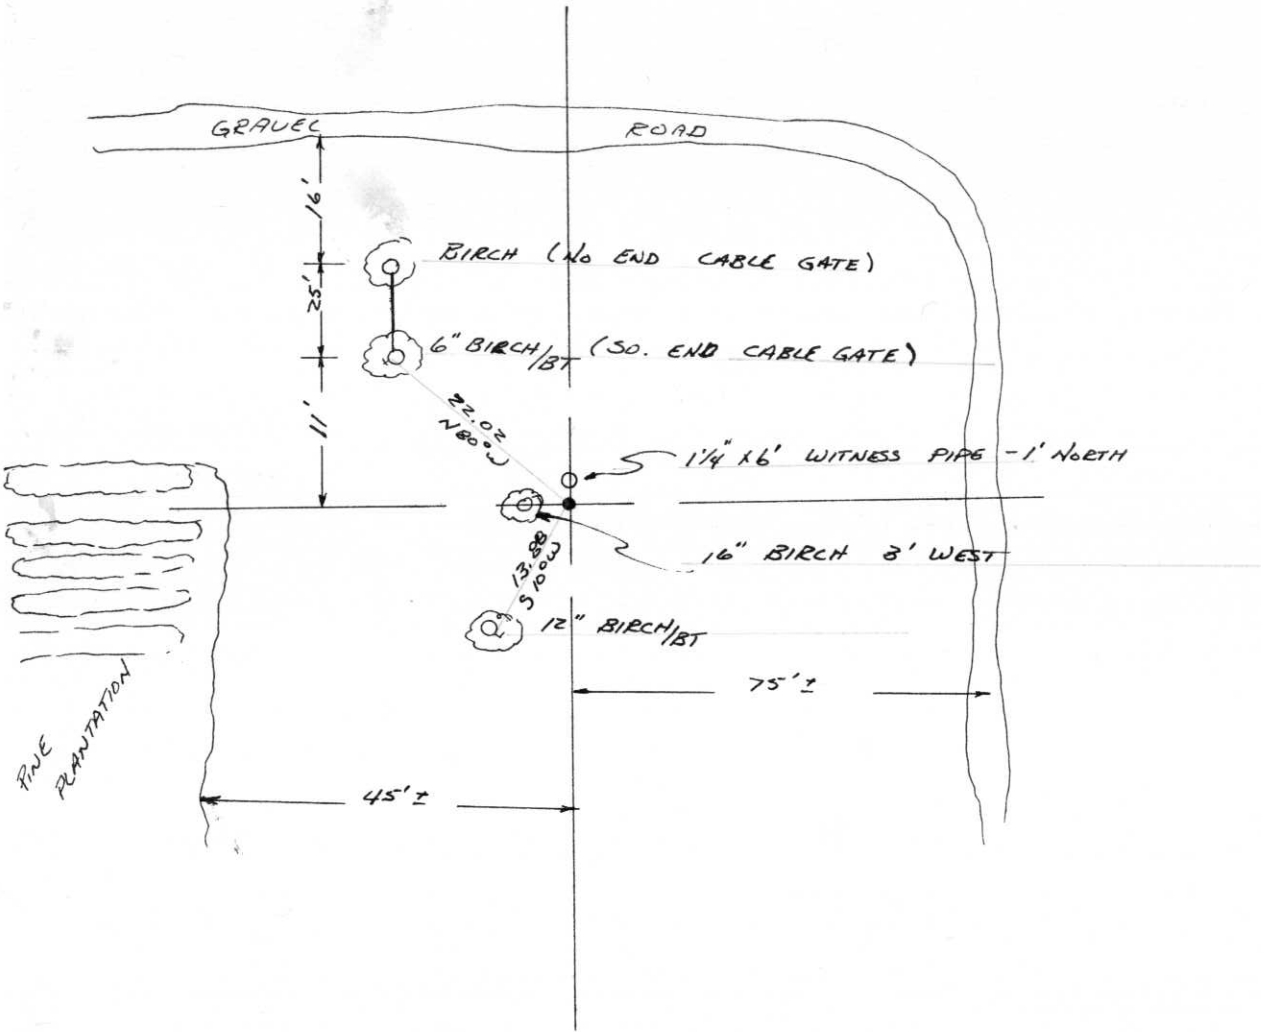 GRAVEL ROAD
16'
BIRCH (No END CABLE GATE)
25'
6" BIRCH/BT (SO. END CABLE GATE)
22.02
N80°W
11'
1¼" x 6' WITNESS PIPE - 1' NORTH
16" BIRCH 3' WEST
13.88
S 10°W
12" BIRCH/BT
75'±
PINE
PLANTATION
45'±